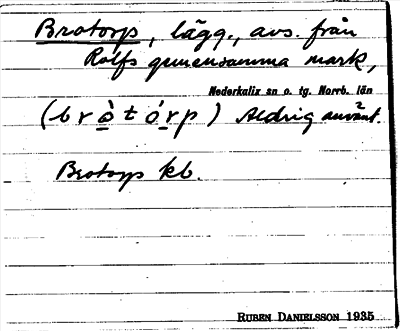 Brotorp, lägg., avs. från
Rolfs gemensamma mark,
Nederkalix sn o. tg. Norrb. län
(b r ò̲ t ó r̲ p) Aldrig använt.
Brotorp kb.
RUBEN DANIELSSON 1935